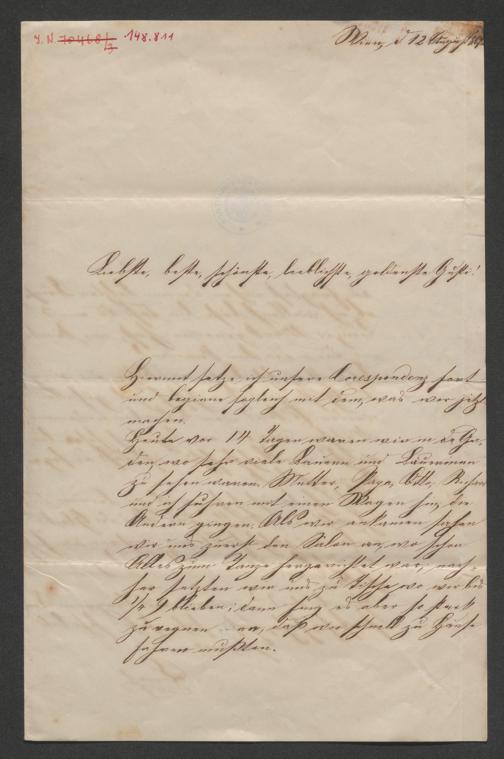 J. N. 70460/3 148.811
Wien, d 12 August
Liebste, beste, schönste, lieblichste, goldenste Gusti!
Hiermit setze ich unsere Correspondenz fort
und beginne sogleich mit dem, was wir jetzt
machen.
Heute vor 14 Tagen waren wir in
den wo sehr viele Bauern und Bäuerinnen
zu sehen waren. Mutter, Papa, Otto,
und ich fuhren mit einem Wagen hin, die
Andern gingen. Als wir ankamen sahen
wir uns zuerst den Salon an, wo schon
Alles zum Tanze hergerichtet war, nach-
her setzten wir uns zu Tische, wo wir bis
1/2 9 blieben; dann fing es aber so stark
zu regnen an, daß wir schnell zu Hause
fahren mußten.